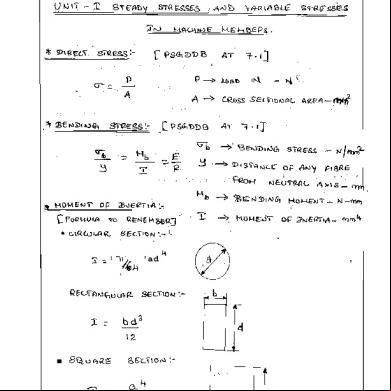 UNIT - I STEADY STRESSES AND VARIABLE STRESSES
IN MACHINE MEMBERS.
* DIRECT STRESS:- [PSGDDB AT 7.1]
σ = P/A
P → LOAD IN - N
A → CROSS SECTIONAL AREA - mm²
* BENDING STRESS:- [PSGDDB AT 7.1]
σb/y = Mb/I = E/R
σb → BENDING STRESS - N/mm²
y → DISTANCE OF ANY FIBRE
FROM NEUTRAL AXIS - m
Mb → BENDING MOMENT - N-mm
I → MOMENT OF INERTIA - mm4
* MOMENT OF INERTIA:-
[FORMULA TO REMEMBER]
• CIRCULAR SECTION:-
d
RECTANGULAR SECTION:-
b
I = bd³/12
d
▪ SQUARE SECTION:-
a4